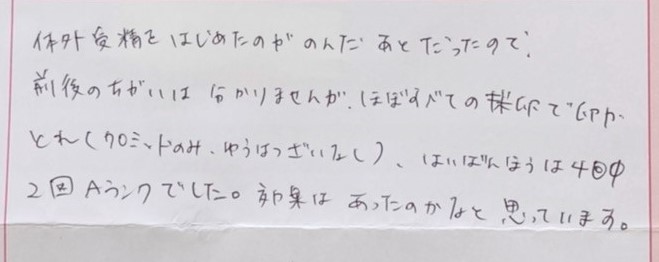 体外受精をはじめたのがのんだあとだったので、
前後のちがいは分かりませんが、ほぼすべての採卵で卵が
とれ(クロミッドのみ、ゆうはつざいなし)、はいばんほうは4回中
2回Aランクでした。効果はあったのかなと思っています。